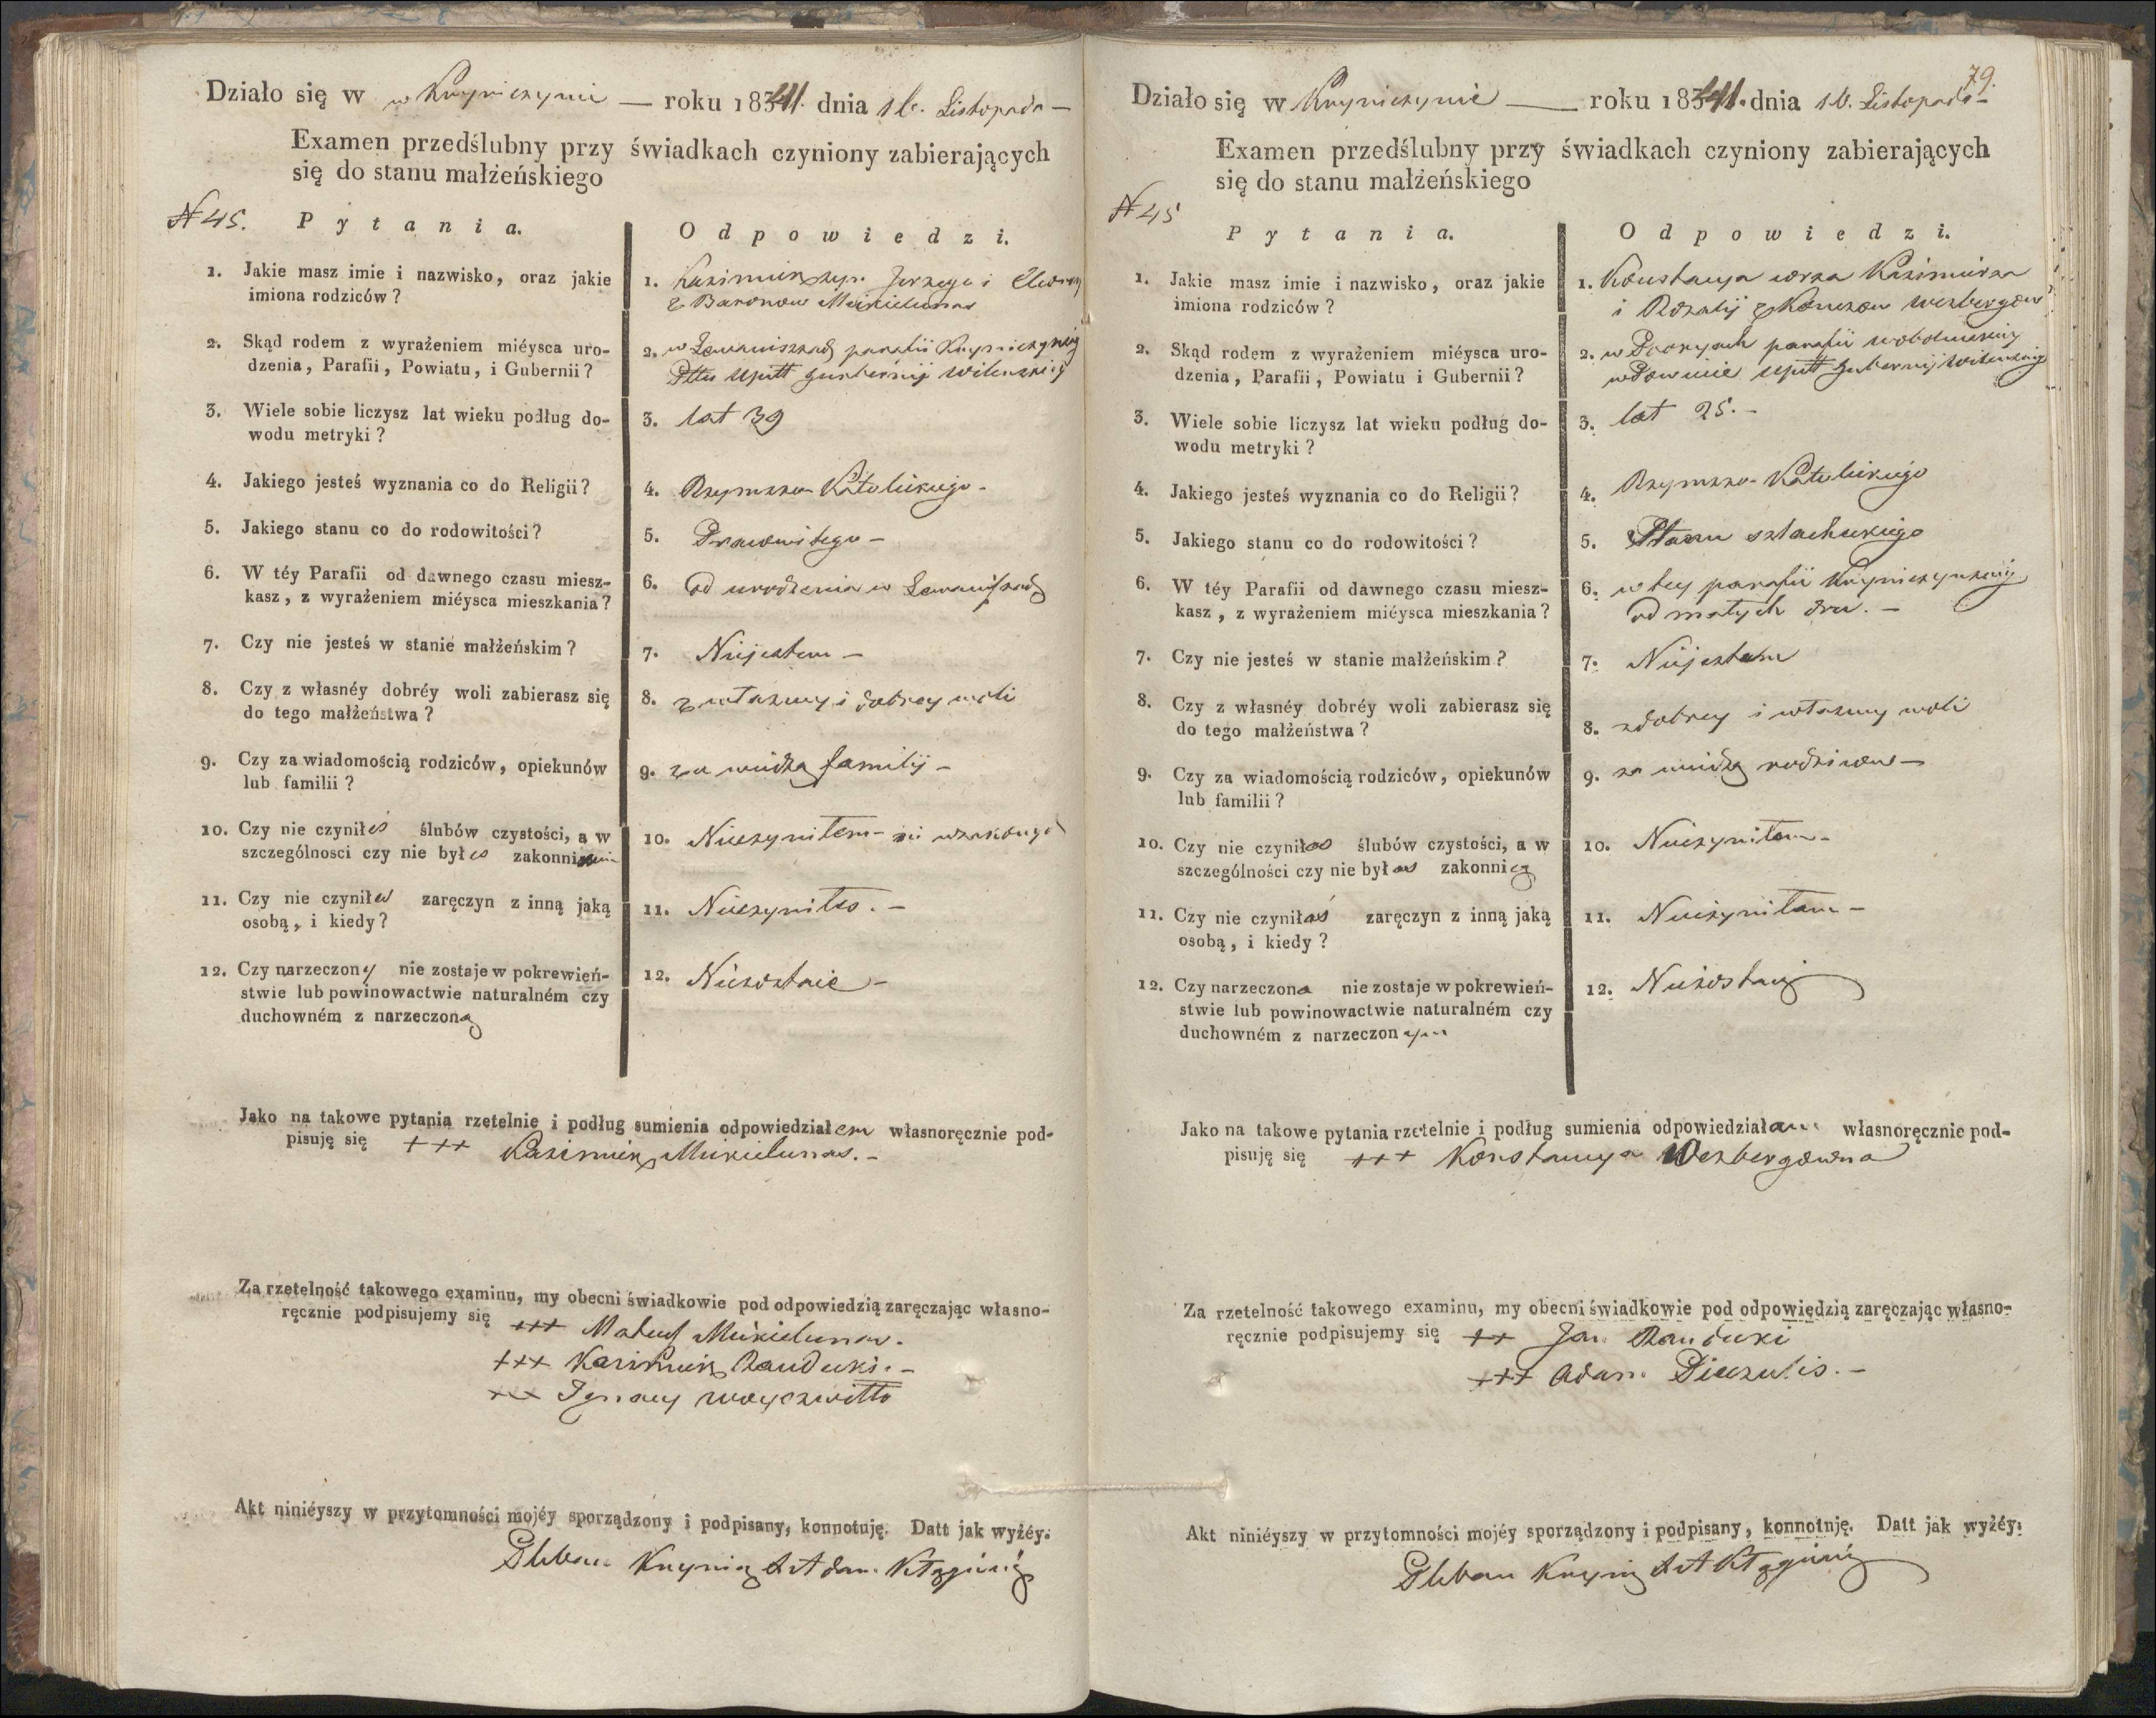 Działo się w w Knyniczynie — roku 1841. dnia 16. Listopada —
Examen przedślubny przy świadkach czyniony zabierających
się do stanu małżeńskiego
N 45. Pytania. Odpowiedzi.
1. Jakie masz imie i nazwisko, oraz jakie
imiona rodziców?
1. Kazimierz syn Jerzego i
z Baronow
2. Skąd rodem z wyrażeniem miéysca uro-
dzenia, Parafii, Powiatu, i Gubernii?
2. w parafii
Pttu Upitt Gubernij Wilenskiey
3. Wiele sobie liczysz lat wieku podług do-
wodu metryki?
3. lat 39
4. Jakiego jesteś wyznania co do Religii?
4. Rzymsko Katolickiego -
5. Jakiego stanu co do rodowitości?
5. Prawowitego -
6. W téy Parafii od dawnego czasu miesz-
kasz, z wyrażeniem miéysca mieszkania?
6. od urodzenia w
7. Czy nie jesteś w stanie małżeńskim?
7. Niejestem —
8. Czy z własnéy dobréy woli zabierasz się
do tego małżeństwa?
8. z własney i dobrey woli
9. Czy za wiadomością rodziców, opiekunów
lub familii?
9. za wiedzą familij -
10. Czy nie czyniłeś ślubów czystości, a w
szczególnosci czy nie byłeś zakonnikiem
10. Nieczyniłem -
11. Czy nie czyniłeś zaręczyn z inną jaką
osobą, i kiedy?
11.
12. Czy narzeczony nie zostaje w pokrewień-
stwie lub powinowactwie naturalném czy
duchowném z narzeczoną
12. Niezostaie -
Jako na takowe pytania rzetelnie i podług sumienia odpowiedziałem własnoręcznie pod-
pisuję się +++ Kazimierz
Za rzetelność takowego examinu, my obecni świadkowie pod odpowiedzią zaręczając własno-
ręcznie podpisujemy się +++ Mateusz
+++ Kazimierz Rauducki. -
+++ Ignacy
Akt niniéyszy w przytomności mojéy sporządzony i podpisany, konnotuję. Datt jak wyżéy.
Pleban
79.
Działo się w Knyniczynie — roku 1841. dnia 16. Listopada -
Examen przedślubny przy świadkach czyniony zabierających
się do stanu małżeńskiego
N 45 Pytania. Odpowiedzi.
1. Jakie masz imie i nazwisko, oraz jakie
imiona rodziców?
1. Konstancya corka Kazimierza
i Rozalij z
2. Skąd rodem z wyrażeniem miéysca uro-
dzenia, Parafii, Powiatu i Gubernii?
2. w parafii
Upitt Gubernij Wilenskiey
3. Wiele sobie liczysz lat wieku podług do-
wodu metryki?
3. lat 25. -
4. Jakiego jesteś wyznania co do Religii?
4. Rzymsko-Katolickiego
5. Jakiego stanu co do rodowitości?
5. Stanu szlacheckiego
6. W téy Parafii od dawnego czasu miesz-
kasz, z wyrażeniem miéysca mieszkania?
6. w tey parafii
od małych dni. -
7. Czy nie jesteś w stanie małżeńskim?
7. Niejestem
8. Czy z własnéy dobréy woli zabierasz się
do tego małżeństwa?
8. z dobrey i własney woli
9. Czy za wiadomością rodziców, opiekunów
lub familii?
9. za wiedzą rodzicow —
10. Czy nie czyniłaś ślubów czystości, a w
szczególności czy nie byłaś zakonnicą
10. Nieczyniłam -
11. Czy nie czyniłaś zaręczyn z inną jaką
osobą, i kiedy?
11. Nieczyniłam -
12. Czy narzeczona nie zostaje w pokrewień-
stwie lub powinowactwie naturalném czy
duchowném z narzeczonym
12. Niezostaię
Jako na takowe pytania rzetelnie i podług sumienia odpowiedziałam własnoręcznie pod-
pisuję się +++ Konstancya Wezbergowna
Za rzetelność takowego examinu, my obecni świadkowie pod odpowiedzią zaręczając własno-
ręcznie podpisujemy się ++ Jan Rauducki
+++ Adam
Akt niniéyszy w przytomności mojéy sporządzony i podpisany, konnotuję. Datt jak wyżéy.
Pleban